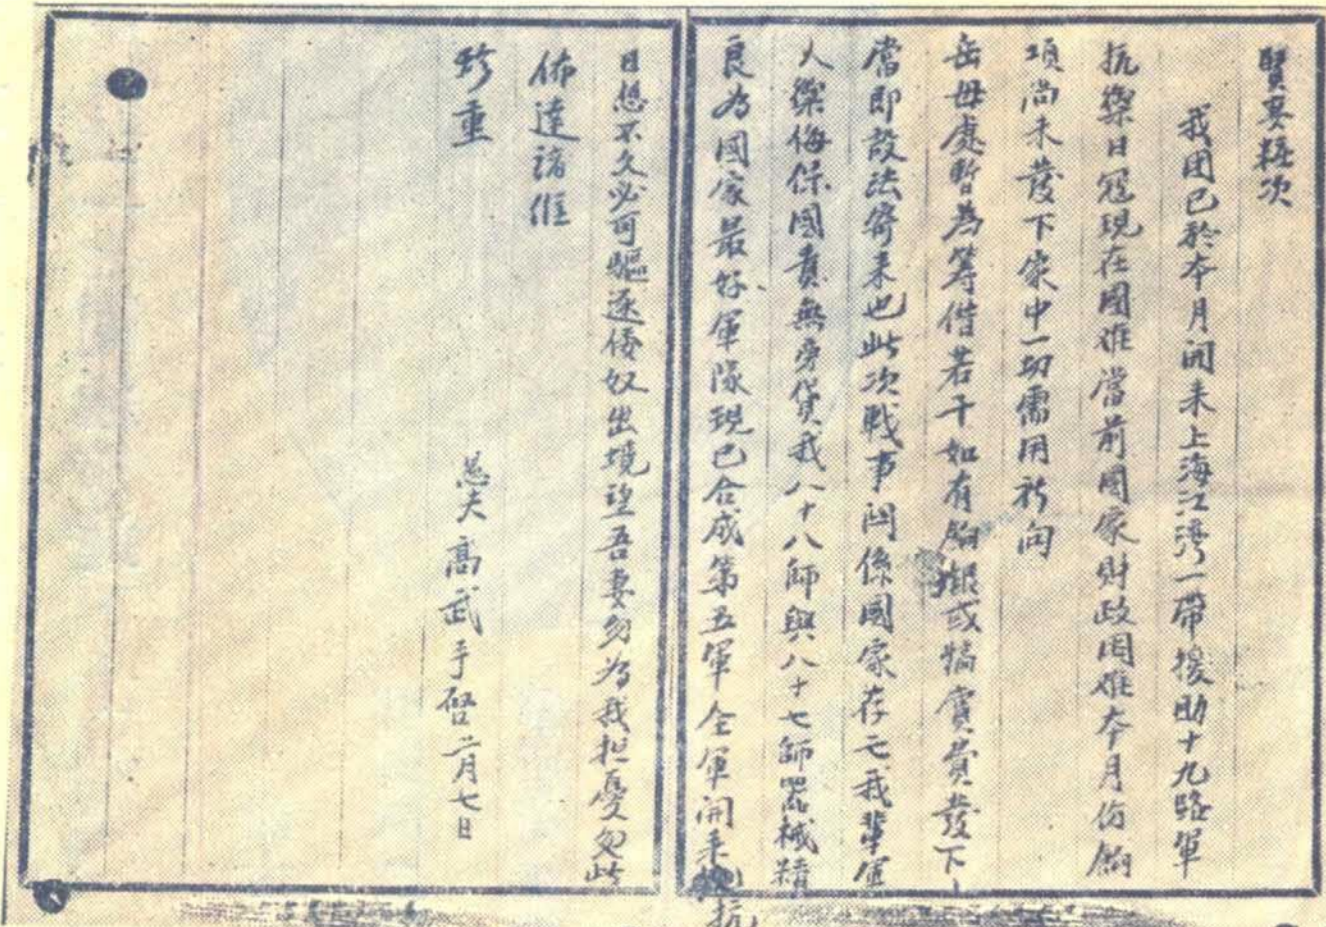 賢妻粧次
我团已於本月開来上海江湾一帶援助十九路軍
抗禦日寇現在國难當前國家財政困难本月份餉
項尚未發下家中一切需用祈向
岳母處暫為筹借若干如有餉銀或犒賞費發下
當即設法寄来也此次戰事関係國家存亡我輩軍
人禦侮保國責無旁貸我八十八師與八十七師器械精
良为國家最好軍隊現已合成第五軍全軍開来抗
日想不久必可驅逐倭奴出境望吾妻勿为我担憂匆此
佈達諸維
珍重
愚夫高武手啓二月七日